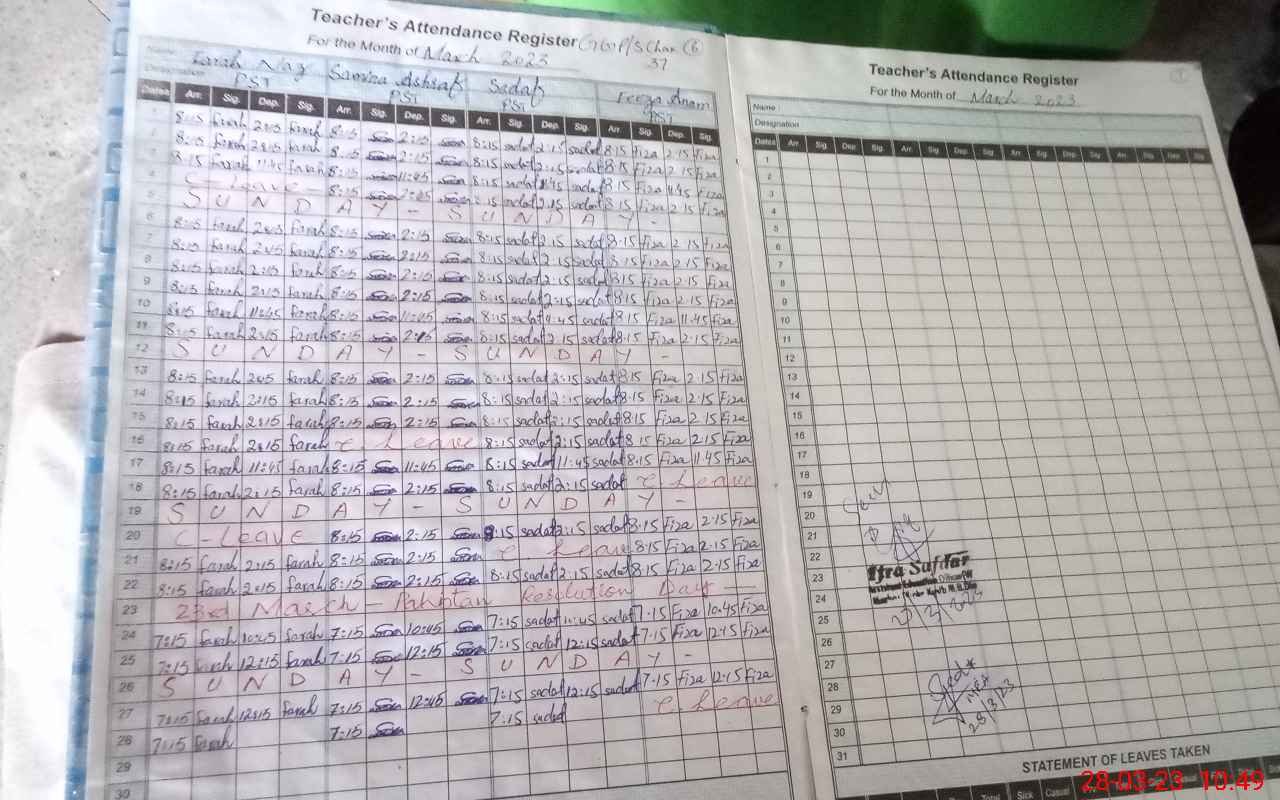 Teacher's Attendance Register
For the Month of March 2023
37
Name Farah Naz Samina Ashraf Sadaf Feeza Anam
Designation PST PST PST PST
Dates Arr. Sig. Dep. Sig. Arr. Sig. Dep. Sig. Arr. Sig. Dep. Sig. Arr. Sig. Dep. Sig.
1 8:15 farah 2:15 farah 8:15 2:15 8:15 sadaf 2:15 sadaf 8:15 Fiza 2:15 Fiza
2 8:15 farah 2:15 farah 8:15 2:15 8:15 sadaf 2:15 sadaf 8:15 Fiza 2:15 Fiza
3 8:15 farah 11:45 farah 8:15 11:45 8:15 sadaf 11:45 sadaf 8:15 Fiza 11:45 Fiza
4 C-Leave - 8:15 2:15 8:15 sadaf 2:15 sadaf 8:15 Fiza 2:15 Fiza
5 S U N D A Y - S U N D A Y -
6 8:15 farah 2:15 farah 8:15 2:15 8:15 sadaf 2:15 sadaf 8:15 Fiza 2:15 Fiza
7 8:15 farah 2:15 farah 8:15 2:15 8:15 sadaf 2:15 sadaf 8:15 Fiza 2:15 Fiza
8 8:15 farah 2:15 farah 8:15 2:15 8:15 sadaf 2:15 sadaf 8:15 Fiza 2:15 Fiza
9 8:15 farah 2:15 farah 8:15 2:15 8:15 sadaf 2:15 sadaf 8:15 Fiza 2:15 Fiza
10 8:15 farah 11:45 farah 8:15 11:45 8:15 sadaf 11:45 sadaf 8:15 Fiza 11:45 Fiza
11 8:15 farah 2:15 farah 8:15 2:15 8:15 sadaf 2:15 sadaf 8:15 Fiza 2:15 Fiza
12 S U N D A Y - S U N D A Y -
13 8:15 farah 2:15 farah 8:15 2:15 8:15 sadaf 2:15 sadaf 8:15 Fiza 2:15 Fiza
14 8:15 farah 2:15 farah 8:15 2:15 8:15 sadaf 2:15 sadaf 8:15 Fiza 2:15 Fiza
15 8:15 farah 2:15 farah 8:15 2:15 8:15 sadaf 2:15 sadaf 8:15 Fiza 2:15 Fiza
16 8:15 farah 2:15 farah C Leave 8:15 sadaf 2:15 sadaf 8:15 Fiza 2:15 Fiza
17 8:15 farah 11:45 farah 8:15 11:45 8:15 sadaf 11:45 sadaf 8:15 Fiza 11:45 Fiza
18 8:15 farah 2:15 farah 8:15 2:15 8:15 sadaf 2:15 sadaf C Leave
19 S U N D A Y - S U N D A Y -
20 C-Leave 8:15 2:15 8:15 sadaf 2:15 sadaf 8:15 Fiza 2:15 Fiza
21 8:15 farah 2:15 farah 8:15 2:15 C Leave 8:15 Fiza 2:15 Fiza
22 8:15 farah 2:15 farah 8:15 2:15 8:15 sadaf 2:15 sadaf 8:15 Fiza 2:15 Fiza
23 23rd March - Pakistan Resolution Day -
24 7:15 farah 10:45 farah 7:15 10:45 7:15 sadaf 10:45 sadaf 7:15 Fiza 10:45 Fiza
25 7:15 farah 12:15 farah 7:15 12:15 7:15 sadaf 12:15 sadaf 7:15 Fiza 12:15 Fiza
26 S U N D A Y - S U N D A Y -
27 7:15 farah 12:15 farah 7:15 12:45 7:15 sadaf 12:15 sadaf 7:15 Fiza 12:15 Fiza
28 7:15 farah 7:15 7:15 sadaf C Leave
29
30
Teacher's Attendance Register
For the Month of March 2023
Name :
Designation
Dates Arr. Sig. Dep. Sig. Arr. Sig. Dep. Sig. Arr. Sig. Dep. Sig. Arr. Sig. Dep. Sig.
1
2
3
4
5
6
7
8
9
10
11
12
13
14
15
16
17
18
19
20
21
22
23
24
25
26
27
28
29
30
31
Ifra Safdar
28/3/23
STATEMENT OF LEAVES TAKEN
Total Sick Casual
28-03-23 10:49